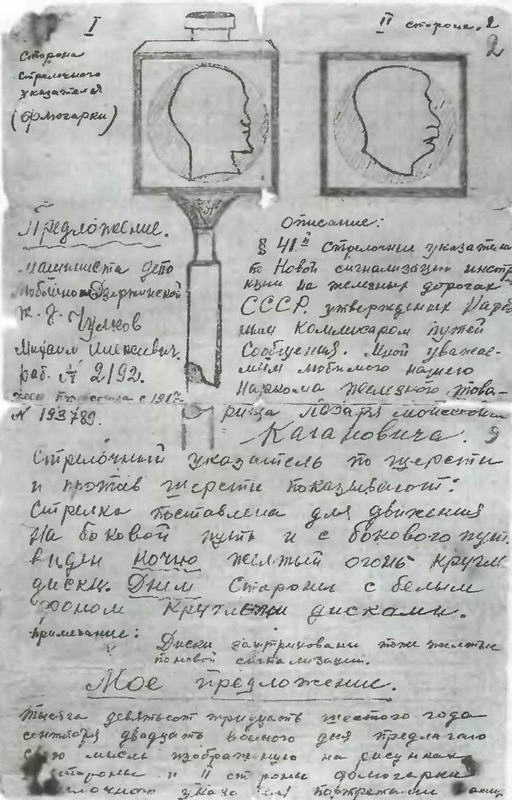 I
Сторона
стрелочного
указателя
(флюгарки)
II сторона. 2
2
Предложение.
машиниста депо
Люботино Дзержинской
ж. д. Чулков
Михаил Алексеевич.
раб. № 2192.
союза с 1917
№ 193789.
Описание:
§ 41й Стрелочные указатели
по Новой сигнализации инстр
кции на железных дорогах
СССР, утвержденных Наро
ным Комиссаром путей
Сообщения. Мной уважае-
мым любимого нашего
Наркома железного това-
рища Лазаря Моисеевича
Кагановича.
Стрелочный указатель по шерсти
и против шерсти показывают:
Стрелка поставлена для движения
на боковой путь и с бокового пути
виден ночью желтый огонь кругл
диски. Днем Стороны с белым
фоном круглыми дисками.
Примечание:
Диски заштрихованы тоже желтые
по новой сигнализации.
Мое предложение.
Тысяча девятьсот тридцать шестого года
сентября двадцать дня предлагаю
свою мысль изображенную на рисунках
стороны и II стороны флюгарки
портретами